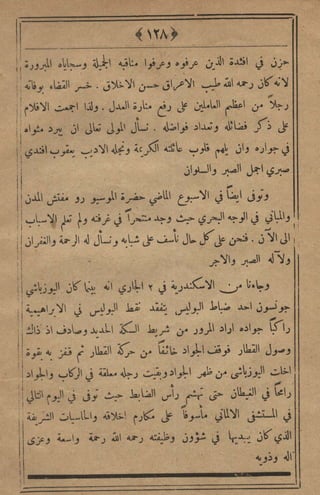 ﴿١٢٨﴾
حزن في افئدة الذين عرفوه وعرفوا مناقبه الجميلة وسجاياه المبرورة
لانه كان رحمه الله طيب الاعراق حسن الاخلاق . خسر القضاء بوفاته
رجلاً من اعظم العاملين على رفع منارة العدل . ولذا اجمعت الاقلام
على ذكر فضائله وتعداد فواضله . نسأل المولى تعالى ان يبرد مثواه
في جواره وان يلهم قلوب عائلته الكريمة ونجله الاديب يعقوب افندي
صبري اجمل الصبر والسلوان
وتوفى ايضاً في الاسبوع الماضي حضرة الموسيو رو مفتش المدن
والمباني في الوجه البحري حيث وجد منتحراً في غرفته ولم تعلم الاسباب
الى الآن . فنحن على كل حال نأسف على شبابه ونسأل له الرحمة والغفران
ولآله الصبر والاجر
وجاءنا من الاسكندرية في ٢ الجاري انه بينما كان اليوزباشي
جونسون احد ضباط البوليس يتفقد نقط البوليس في الابراهيمية
راكباً جواده اراد المرور من شريط السكة الحديد وصادف اذ ذاك
وصول القطار فوقف الجواد خائفاً من حركة القطار ثم قفز به بقوة
اخلت اليوزباشي من ظهر الجواد وبقيت رجله معلقة في الركاب والجواد
رامحاً في الغيطان حتى تهشم رأس الضابط حيث توفى في اليوم التالي
في المستشفى الالماني مأسوفاً على مكارم اخلاقه والحاسيات الشريفة
الذي كان يبديها في شؤون وظيفته رحمه الله رحمة واسعة وعزى
اله وذويه